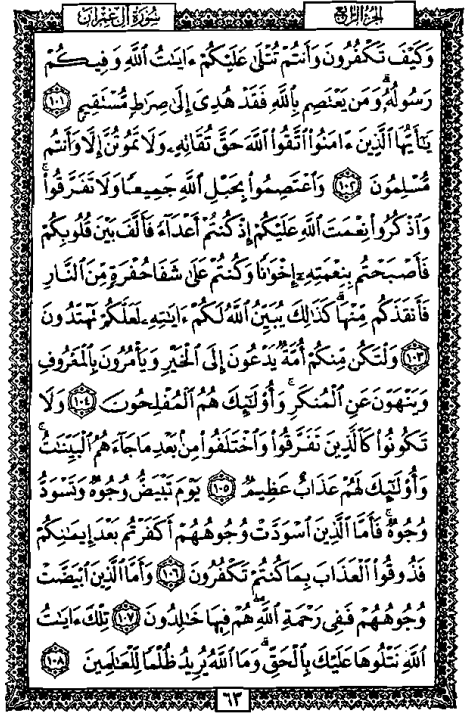 سُورَةُ آلِ عِمْرَان الجُزْءُ الرَّابِعُ
وَكَيْفَ تَكْفُرُونَ وَأَنتُمْ تُتْلَىٰ عَلَيْكُمْ ءَايَٰتُ ٱللَّهِ وَفِيكُمْ
رَسُولُهُۥ ۗ وَمَن يَعْتَصِم بِٱللَّهِ فَقَدْ هُدِىَ إِلَىٰ صِرَٰطٍ مُّسْتَقِيمٍ ١٠١
يَٰٓأَيُّهَا ٱلَّذِينَ ءَامَنُوا۟ ٱتَّقُوا۟ ٱللَّهَ حَقَّ تُقَاتِهِۦ وَلَا تَمُوتُنَّ إِلَّا وَأَنتُم
مُّسْلِمُونَ ١٠٢ وَٱعْتَصِمُوا۟ بِحَبْلِ ٱللَّهِ جَمِيعًا وَلَا تَفَرَّقُوا۟ ۚ
وَٱذْكُرُوا۟ نِعْمَتَ ٱللَّهِ عَلَيْكُمْ إِذْ كُنتُمْ أَعْدَآءً فَأَلَّفَ بَيْنَ قُلُوبِكُمْ
فَأَصْبَحْتُم بِنِعْمَتِهِۦٓ إِخْوَٰنًا وَكُنتُمْ عَلَىٰ شَفَا حُفْرَةٍ مِّنَ ٱلنَّارِ
فَأَنقَذَكُم مِّنْهَا ۗ كَذَٰلِكَ يُبَيِّنُ ٱللَّهُ لَكُمْ ءَايَٰتِهِۦ لَعَلَّكُمْ تَهْتَدُونَ
١٠٣ وَلْتَكُن مِّنكُمْ أُمَّةٌ يَدْعُونَ إِلَى ٱلْخَيْرِ وَيَأْمُرُونَ بِٱلْمَعْرُوفِ
وَيَنْهَوْنَ عَنِ ٱلْمُنكَرِ ۚ وَأُو۟لَٰٓئِكَ هُمُ ٱلْمُفْلِحُونَ ١٠٤ وَلَا
تَكُونُوا۟ كَٱلَّذِينَ تَفَرَّقُوا۟ وَٱخْتَلَفُوا۟ مِنۢ بَعْدِ مَا جَآءَهُمُ ٱلْبَيِّنَٰتُ ۚ
وَأُو۟لَٰٓئِكَ لَهُمْ عَذَابٌ عَظِيمٌ ١٠٥ يَوْمَ تَبْيَضُّ وُجُوهٌ وَتَسْوَدُّ
وُجُوهٌ ۚ فَأَمَّا ٱلَّذِينَ ٱسْوَدَّتْ وُجُوهُهُمْ أَكَفَرْتُم بَعْدَ إِيمَٰنِكُمْ
فَذُوقُوا۟ ٱلْعَذَابَ بِمَا كُنتُمْ تَكْفُرُونَ ١٠٦ وَأَمَّا ٱلَّذِينَ ٱبْيَضَّتْ
وُجُوهُهُمْ فَفِى رَحْمَةِ ٱللَّهِ هُمْ فِيهَا خَٰلِدُونَ ١٠٧ تِلْكَ ءَايَٰتُ
ٱللَّهِ نَتْلُوهَا عَلَيْكَ بِٱلْحَقِّ ۗ وَمَا ٱللَّهُ يُرِيدُ ظُلْمًا لِّلْعَٰلَمِينَ ١٠٨
٦٣